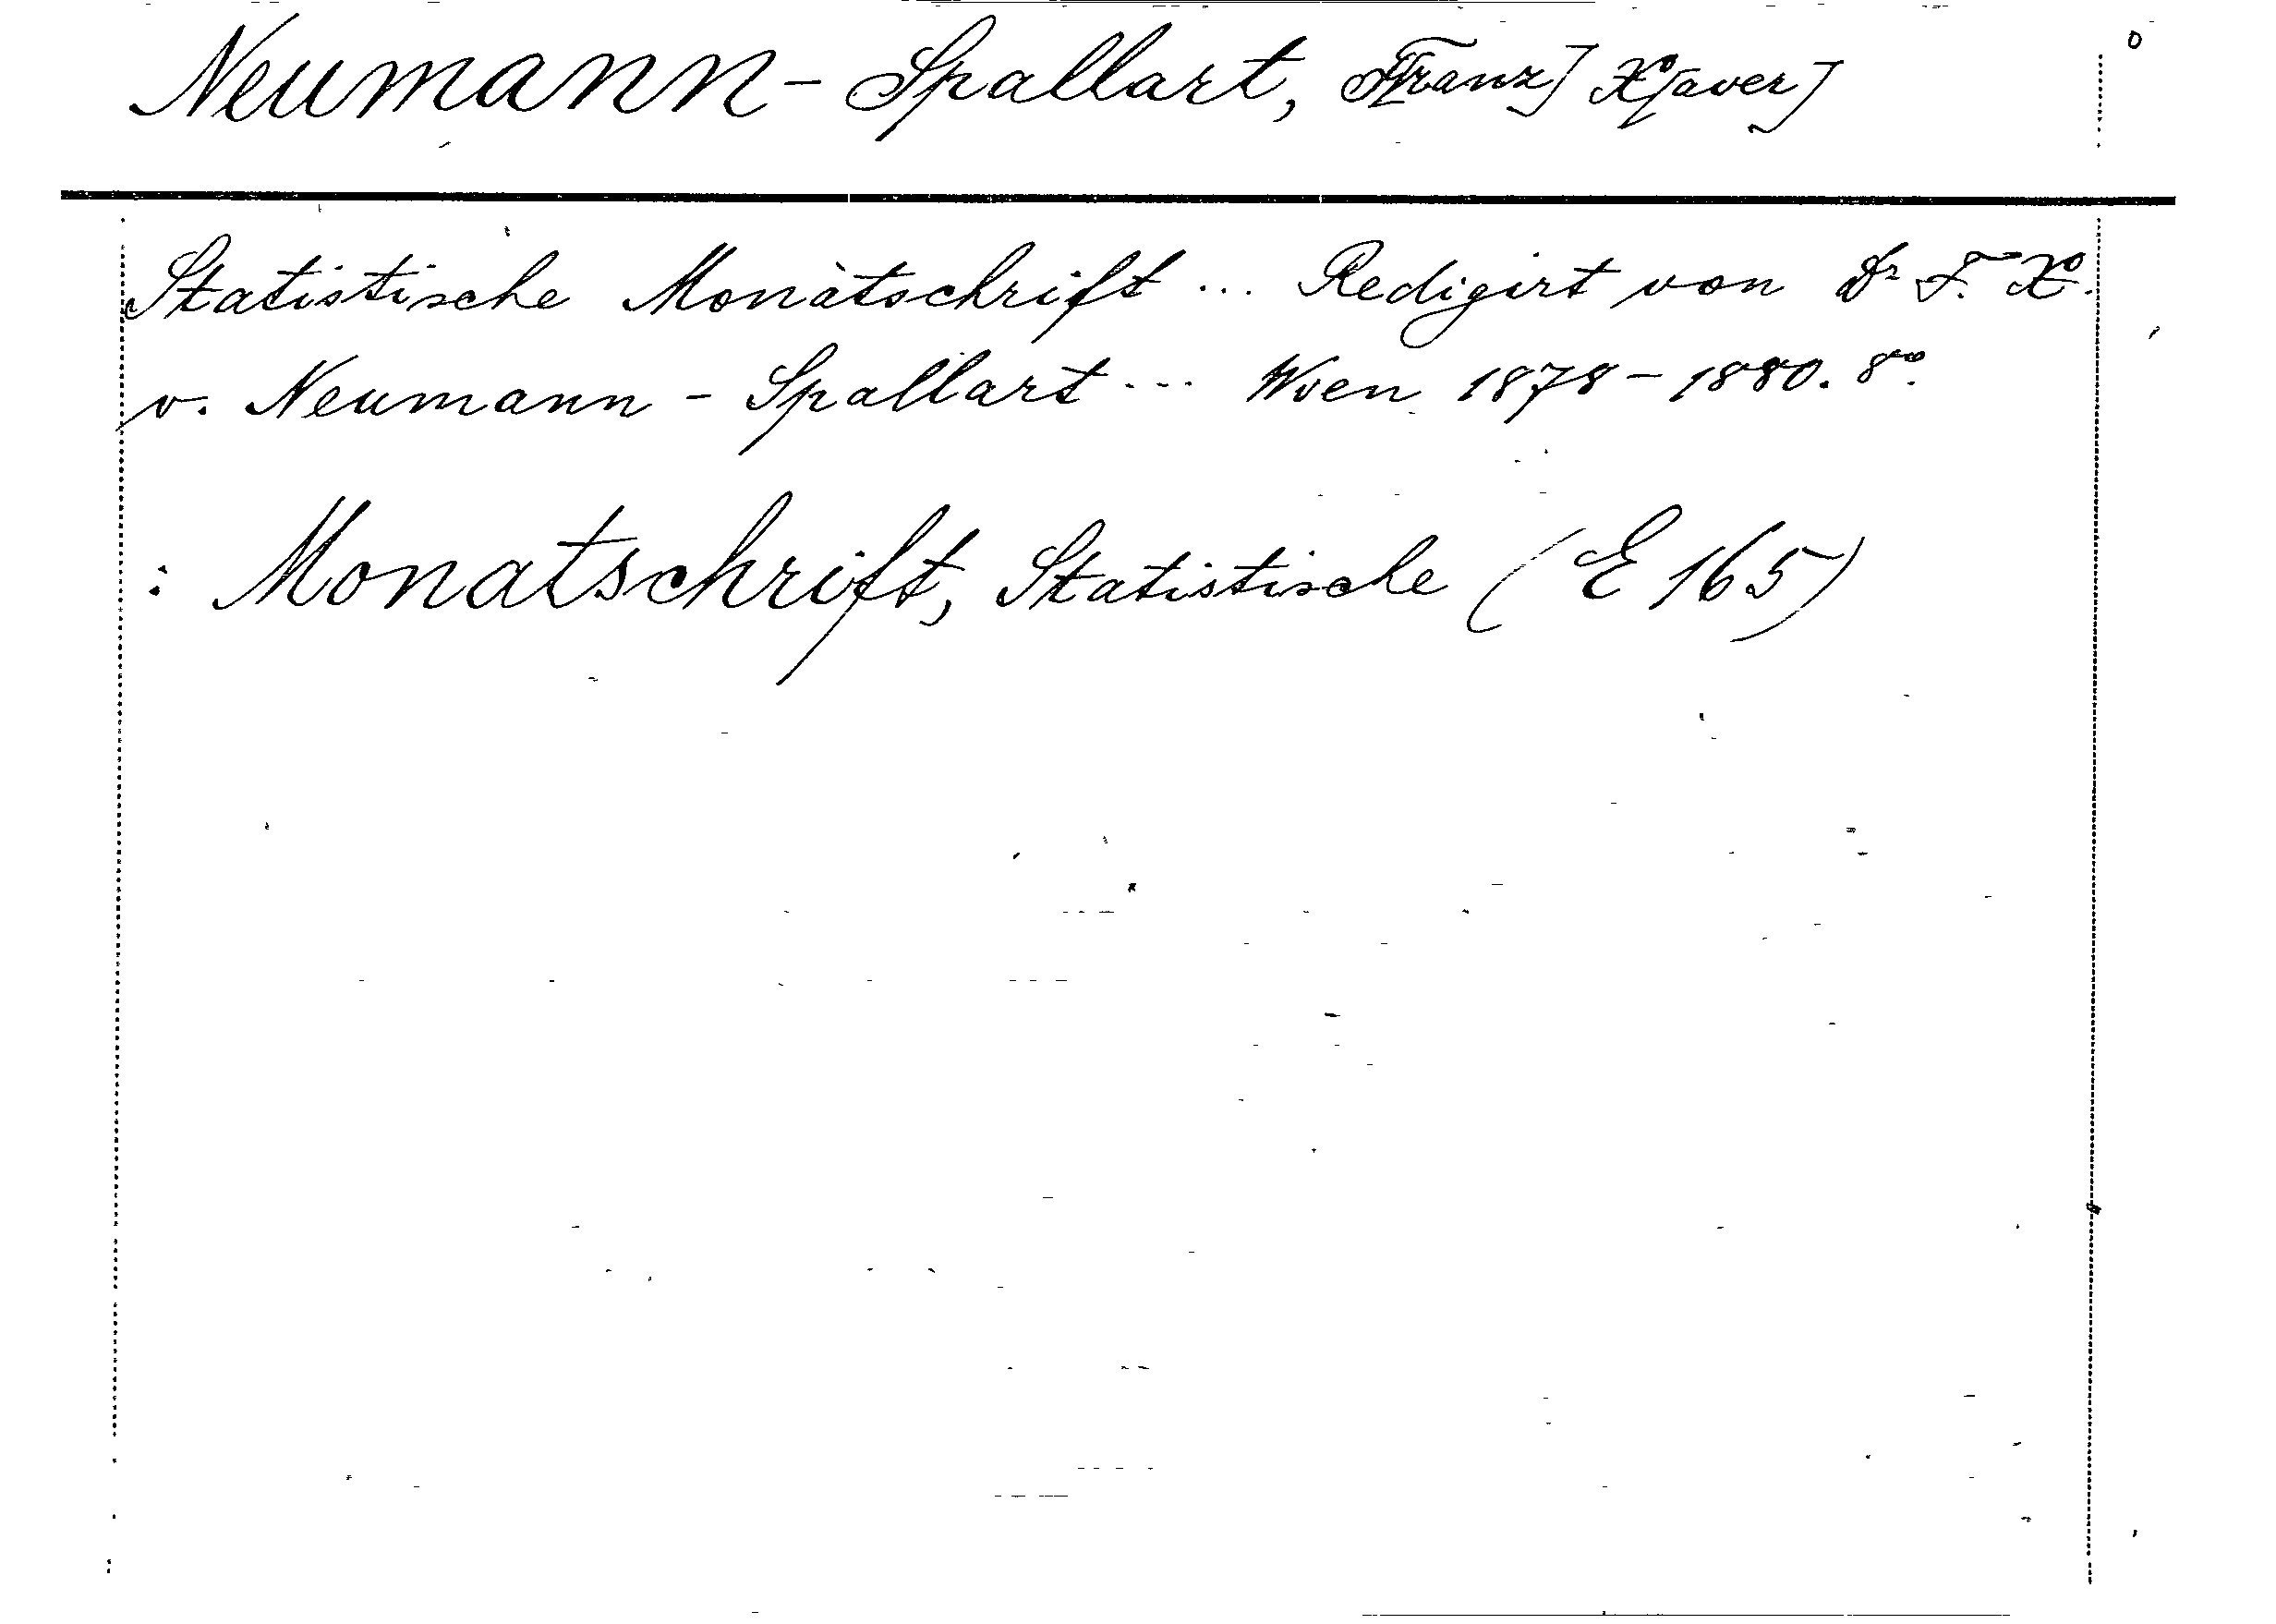 Neumann-Spallart, F[ranz] X[aver]
Statistische Monatschrift ... Redigirt von Dr F. X.
v. Neumann-Spallart ... Wien 1878-1880. 8vo.
: Monatschrift, Statistische (E 165)